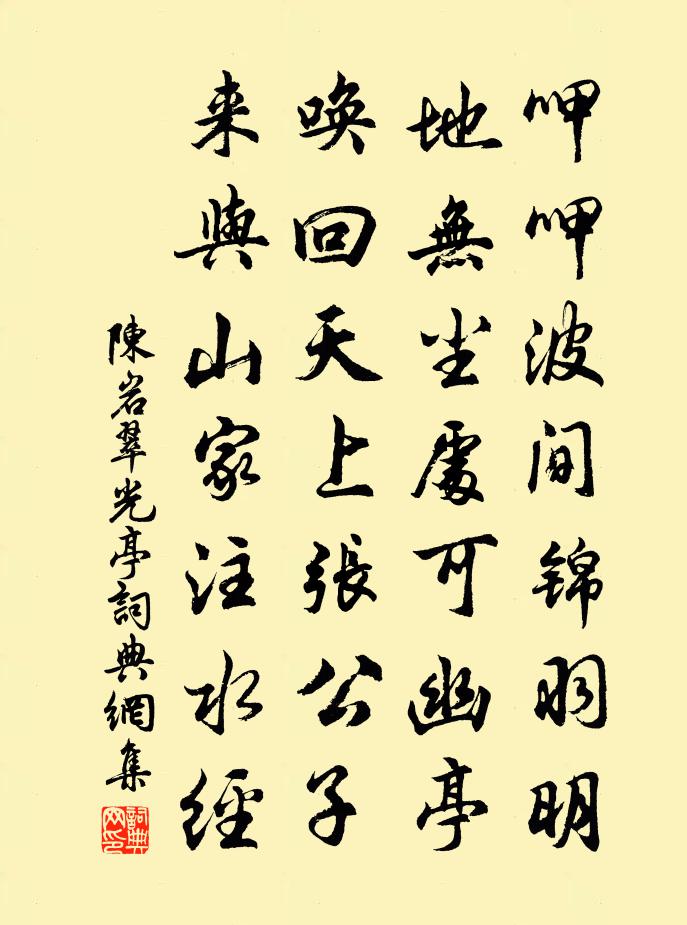 呷呷波間錦羽明
地無尘處可幽亭
喚回天上張公子
来與山家注水經
陳岩翠光亭詞典網集
詞典网印